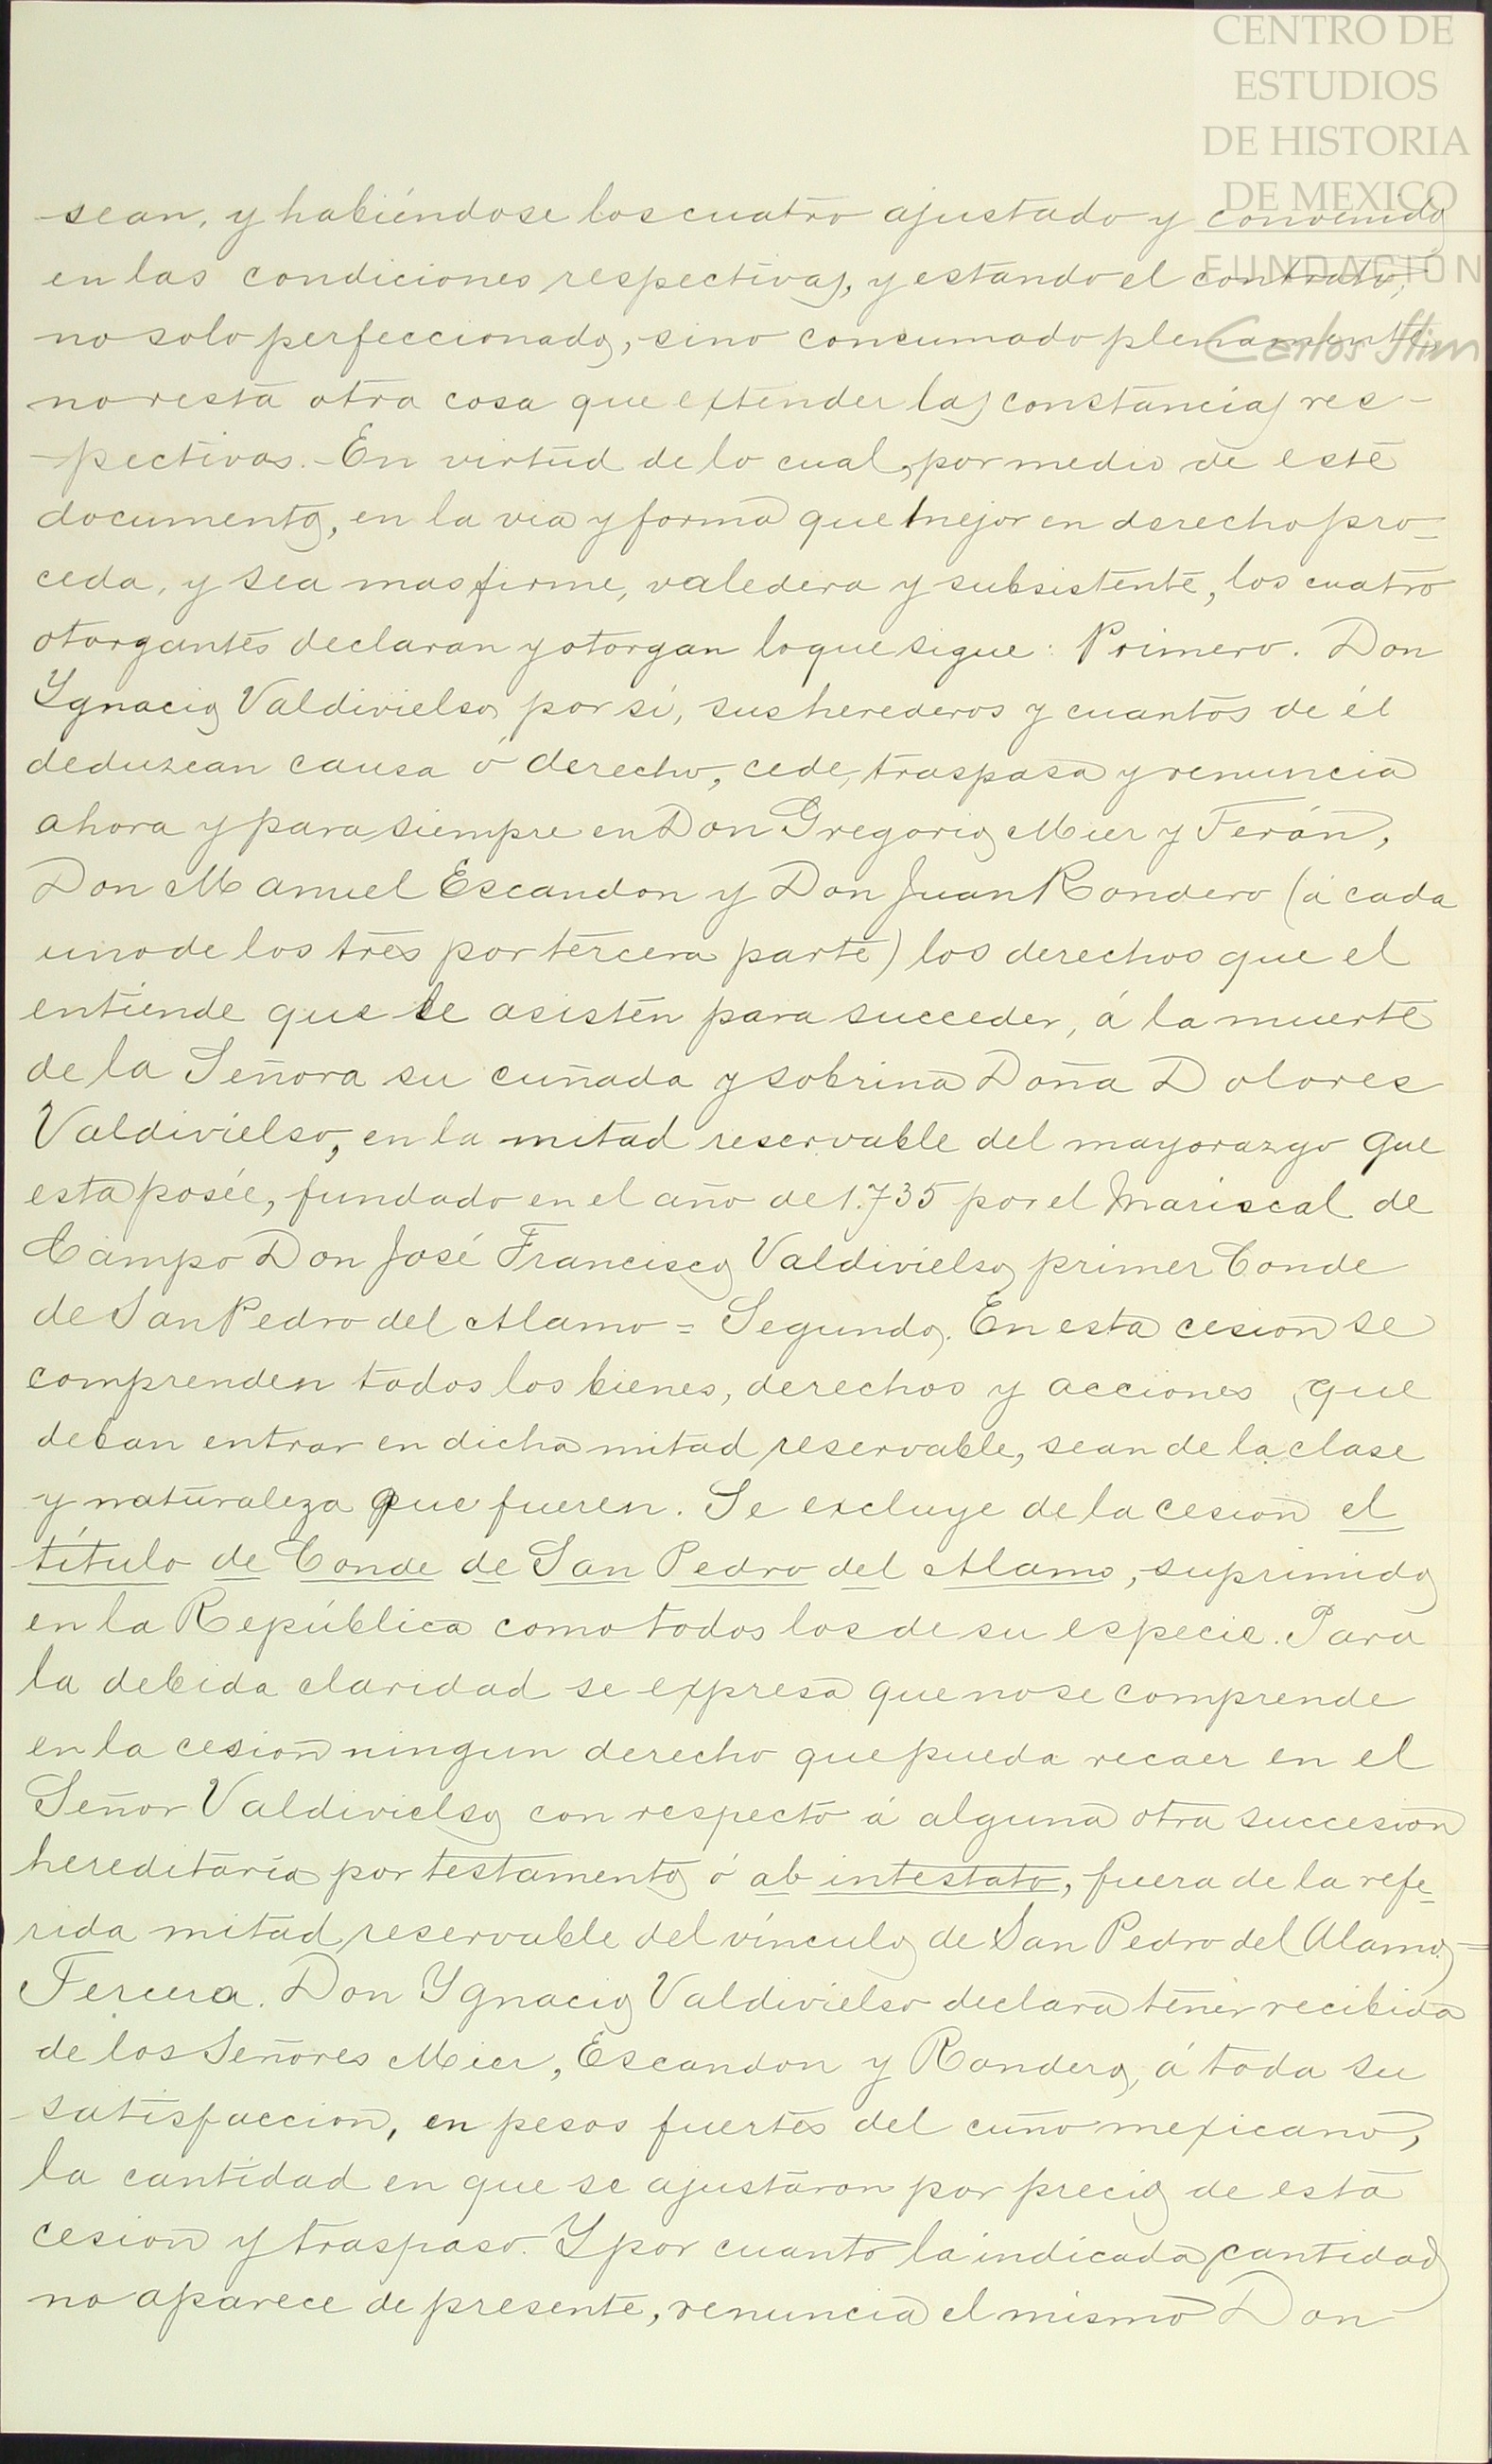 CENTRO DE
ESTUDIOS
DE HISTORIA
DE MEXICO
FUNDACIÓN
Carlos Slim
sean, y habiéndose los cuatro ajustado y convenido
en las condiciones respectivas, y estando el contrato,
no solo perfeccionado, sino consumado plenamente,
no resta otra cosa que extender las constancias res-
-pectivas. - En virtud de lo cual, por medio de este
documento, en la via y forma que mejor en derecho pro-
ceda, y sea mas firme, valedera y subsistente, los cuatro
otorgantes declaran y otorgan lo que sigue: Primero. Don
Ygnacio Valdivielso por sí, sus herederos y cuantos de él
deduzcan causa ó derecho, cede, traspasa y renuncia
ahora y para siempre en Don Gregorio Mier y Terán,
Don Manuel Escandon y Don Juan Rondero (á cada
uno de los tres por tercera parte) los derechos que el
entiende que le asisten para succeder, á la muerte
de la Señora su cuñada y sobrina Doña Dolores
Valdivielso, en la mitad reservable del mayorazgo que
esta posée, fundado en el año de 1.735 por el Mariscal de
Campo Don José Francisco Valdivielso primer Conde
de San Pedro del Alamo = Segundo. En esta cesion se
comprenden todos los bienes, derechos y acciones que
deban entrar en dicha mitad reservable, sean de la clase
y naturaleza que fueren. Se excluye de la cesion el
título de Conde de San Pedro del Alamo, suprimido
en la República como todos los de su especie. Para
la debida claridad se expresa que no se comprende
en la cesion ningun derecho que pueda recaer en el
Señor Valdivielso con respecto á alguna otra succesion
hereditaria por testamento ó ab intestato, fuera de la refe-
rida mitad reservable del vínculo de San Pedro del Alamo =
Tercera. Don Ygnacio Valdivielso declara tener recibida
de los Señores Mier, Escandon y Rondero, á toda su
satisfaccion, en pesos fuertes del cuño mexicano,
la cantidad en que se ajustaron por precio de esta
cesion y traspaso. Y por cuanto la indicada cantidad
no aparece de presente, renuncia el mismo Don